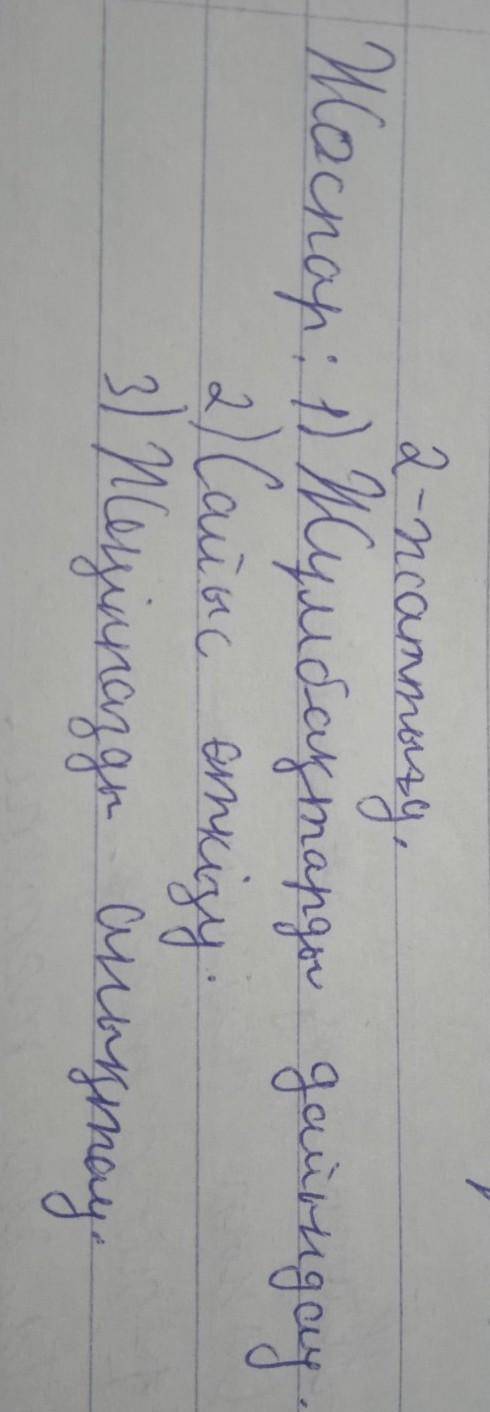 2-жаттығу.
Жоспар: 1) Жұмбақтарды дайындау.
2) Сайыс өткізу.
3) Жеңімпазды анықтау.